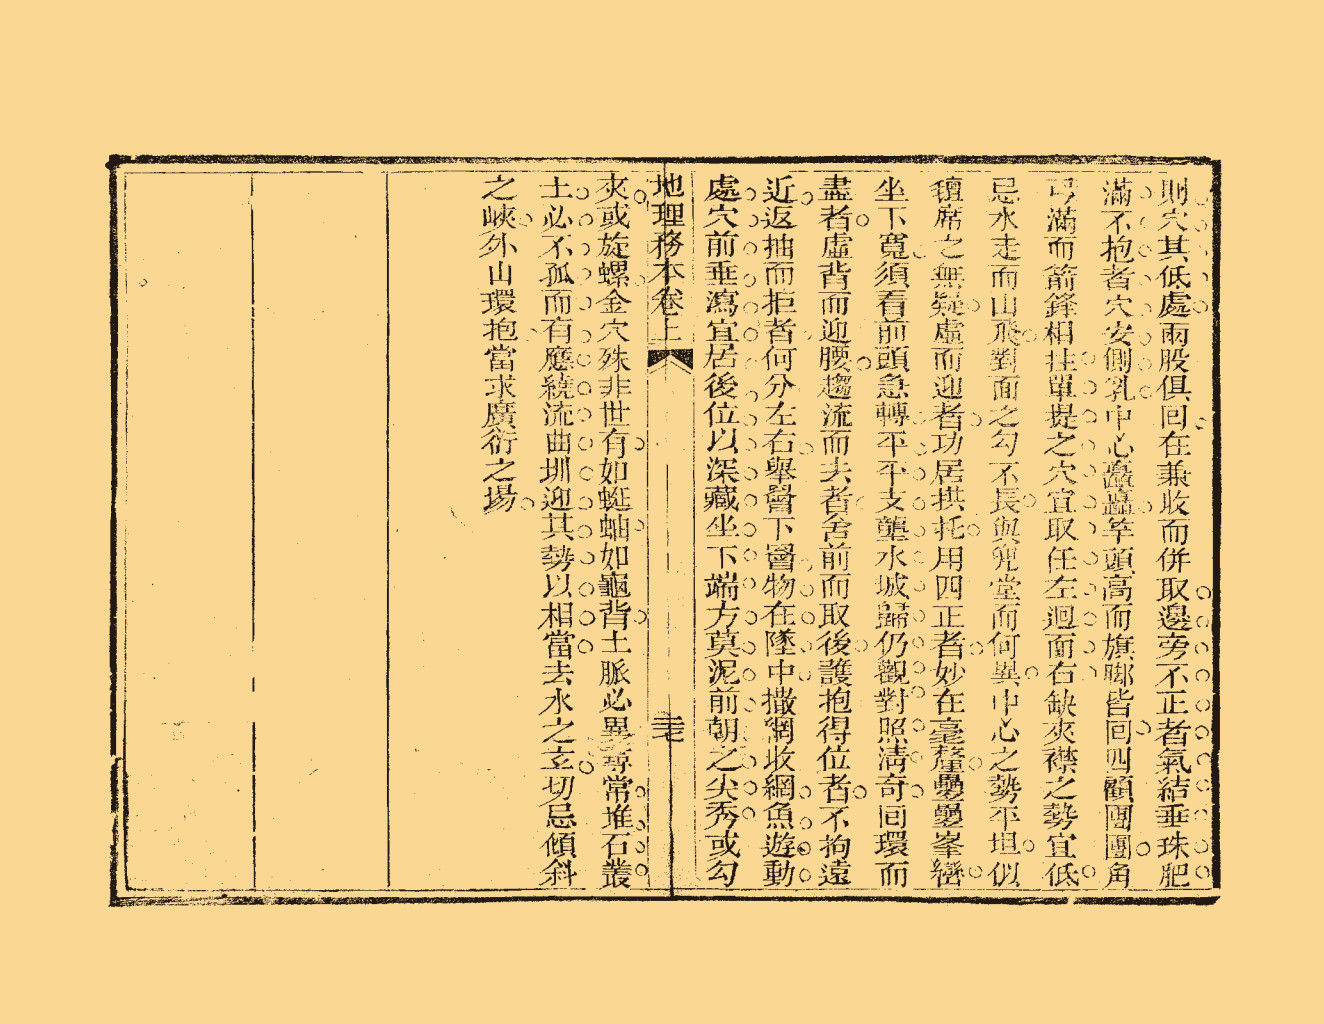 則穴其低處兩股俱回在兼收而併取邊旁不正者氣結垂珠肥
滿不抱者穴安側乳中心矗矗竿頭高而旗腳皆回四顧團團角
弓滿而箭鋒相拄單提之穴宜取任左迴而右缺夾襟之勢宜低
忌水走而山飛對面之勾不長與兜堂而何異中心之勢平坦似
氊席之無疑虛而迎者功居拱托用四正者妙在毫釐疊疊峯巒
坐下寬須看前頭急轉平平支壟水城歸仍觀對照淸奇回環而
盡者虛背而迎腰趨流而去者舍前而取後護抱得位者不拘遠
近返抽而拒者何分左右舉罾下罾物在墜中撒網收網魚遊動
處穴前垂瀉宜居後位以深藏坐下端方莫泥前朝之尖秀或勾
地理務本卷上 三七
夾或旋螺金穴殊非世有如蜓蚰如龜背土脈必異尋常堆石叢
土必不孤而有應繞流曲圳迎其勢以相當去水之玄切忌傾斜
之峽外山環抱當求廣衍之場